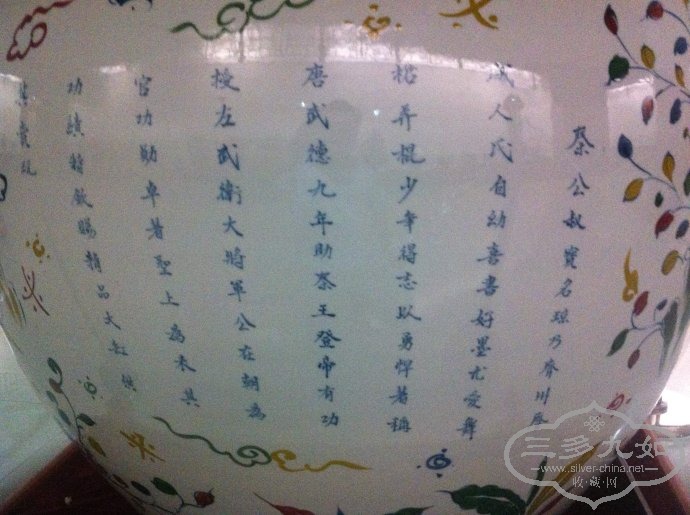 秦公叔寳名琼乃齊州歷
城人氏自幼喜書好墨尤愛舞
枪弄棍少年得志以勇悍著稱
唐武德九年助秦王登帝有功
授左武衛大將軍公在朝為
官功勋卓著聖上為表其
功績特欽賜精品大缸供
其賞玩
三多九如
www.silver-china.net
收·藏·网